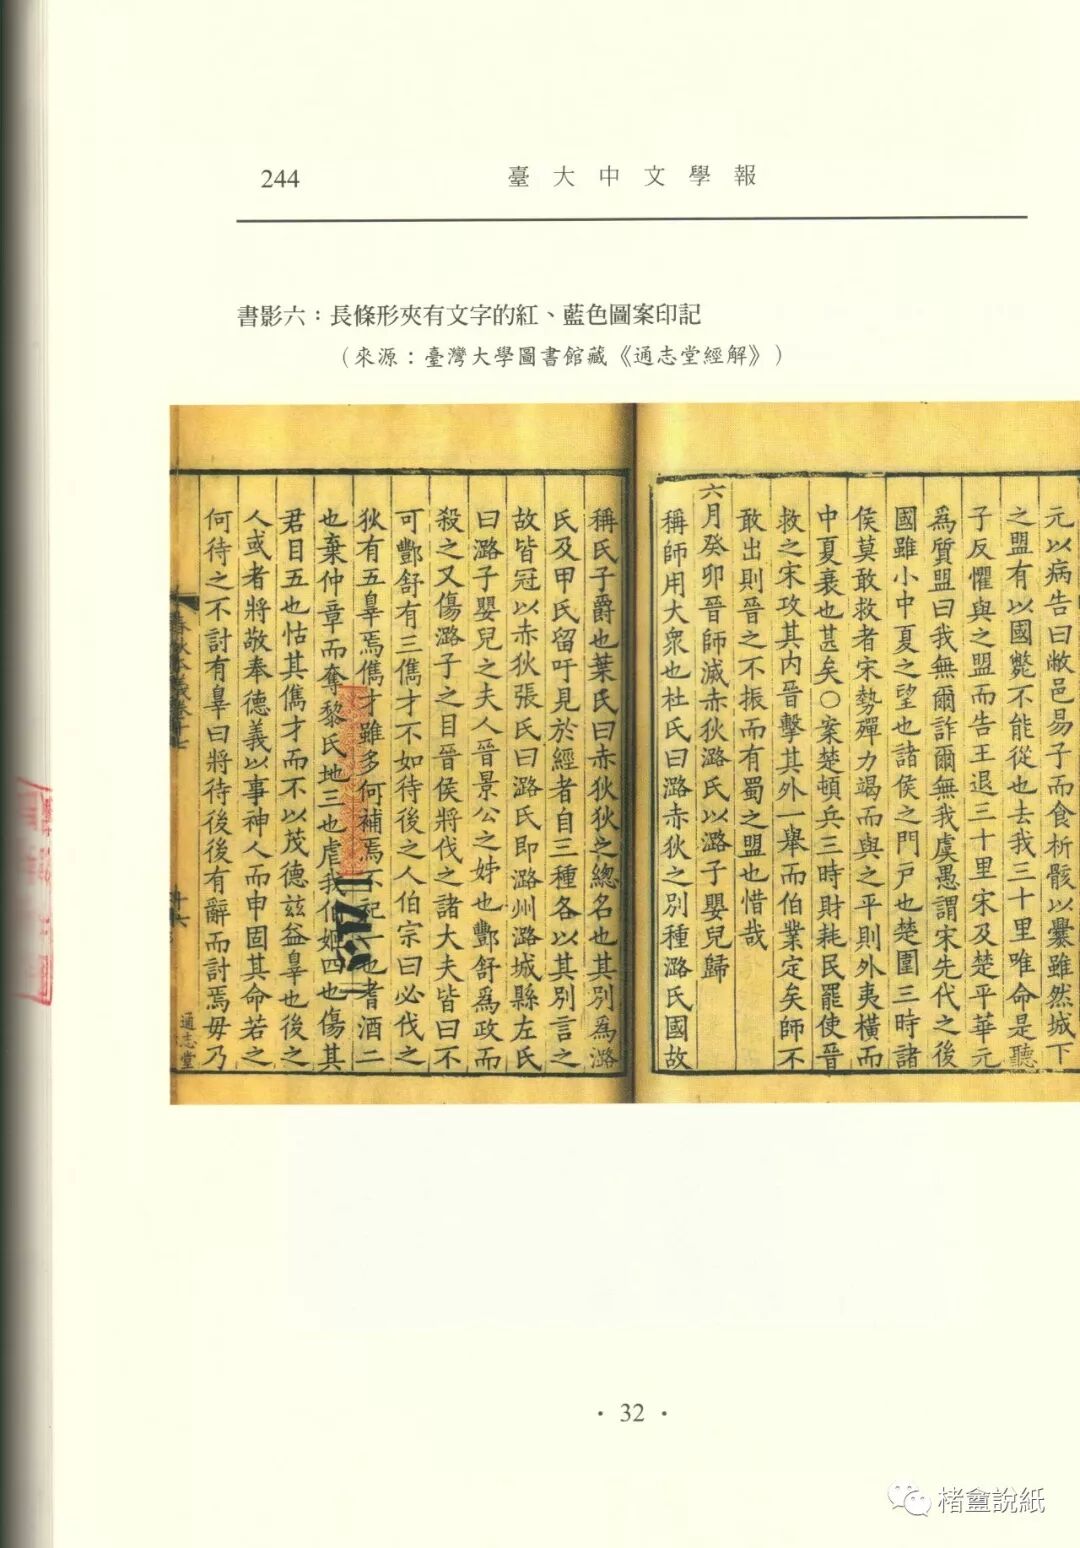 244
臺大中文學報
書影六：長條形夾有文字的紅、藍色圖案印記
（來源：臺灣大學圖書館藏《通志堂經解》）
元以病告曰敝邑易子而食析骸以爨雖然城下
之盟有以國斃不能從也去我三十里唯命是聽
子反懼與之盟而告王退三十里宋及楚平華元
為質盟曰我無爾詐爾無我虞愚謂宋先代之後
國雖小中夏之望也諸侯之門戸也楚圍三時諸
侯莫敢救者宋勢殫力竭而與之平則外夷橫而
中夏衰也甚矣○案楚頓兵三時財耗民罷使晉
救之宋攻其内晉擊其外一舉而伯業定矣師不
敢出則晉之不振而有蜀之盟也惜哉
六月癸卯晉師滅赤狄潞氏以潞子嬰兒歸
稱師用大衆也杜氏曰潞赤狄之別種潞氏國故
稱氏子爵也葉氏曰赤狄狄之總名也其別為潞
氏及甲氏留吁見於經者自三種各以其別言之
故皆冠以赤狄張氏曰潞氏即潞州潞城縣左氏
曰潞子嬰兒之夫人晉景公之姊也酆舒為政而
殺之又傷潞子之目晉侯將伐之諸大夫皆曰不
可酆舒有三儁才不如待後之人伯宗曰必伐之
狄有五辠焉儁才雖多何補焉不祀一也耆酒二
也棄仲章而奪黎氏地三也虐我伯姬四也傷其
君目五也怙其儁才而不以茂德玆益辠也後之
人或者將敬奉德義以事神人而申固其命若之
何待之不討有辠曰將待後後有辭而討焉毋乃
春秋本義卷十七
十六
通志堂
• 32 •
楮盦說紙